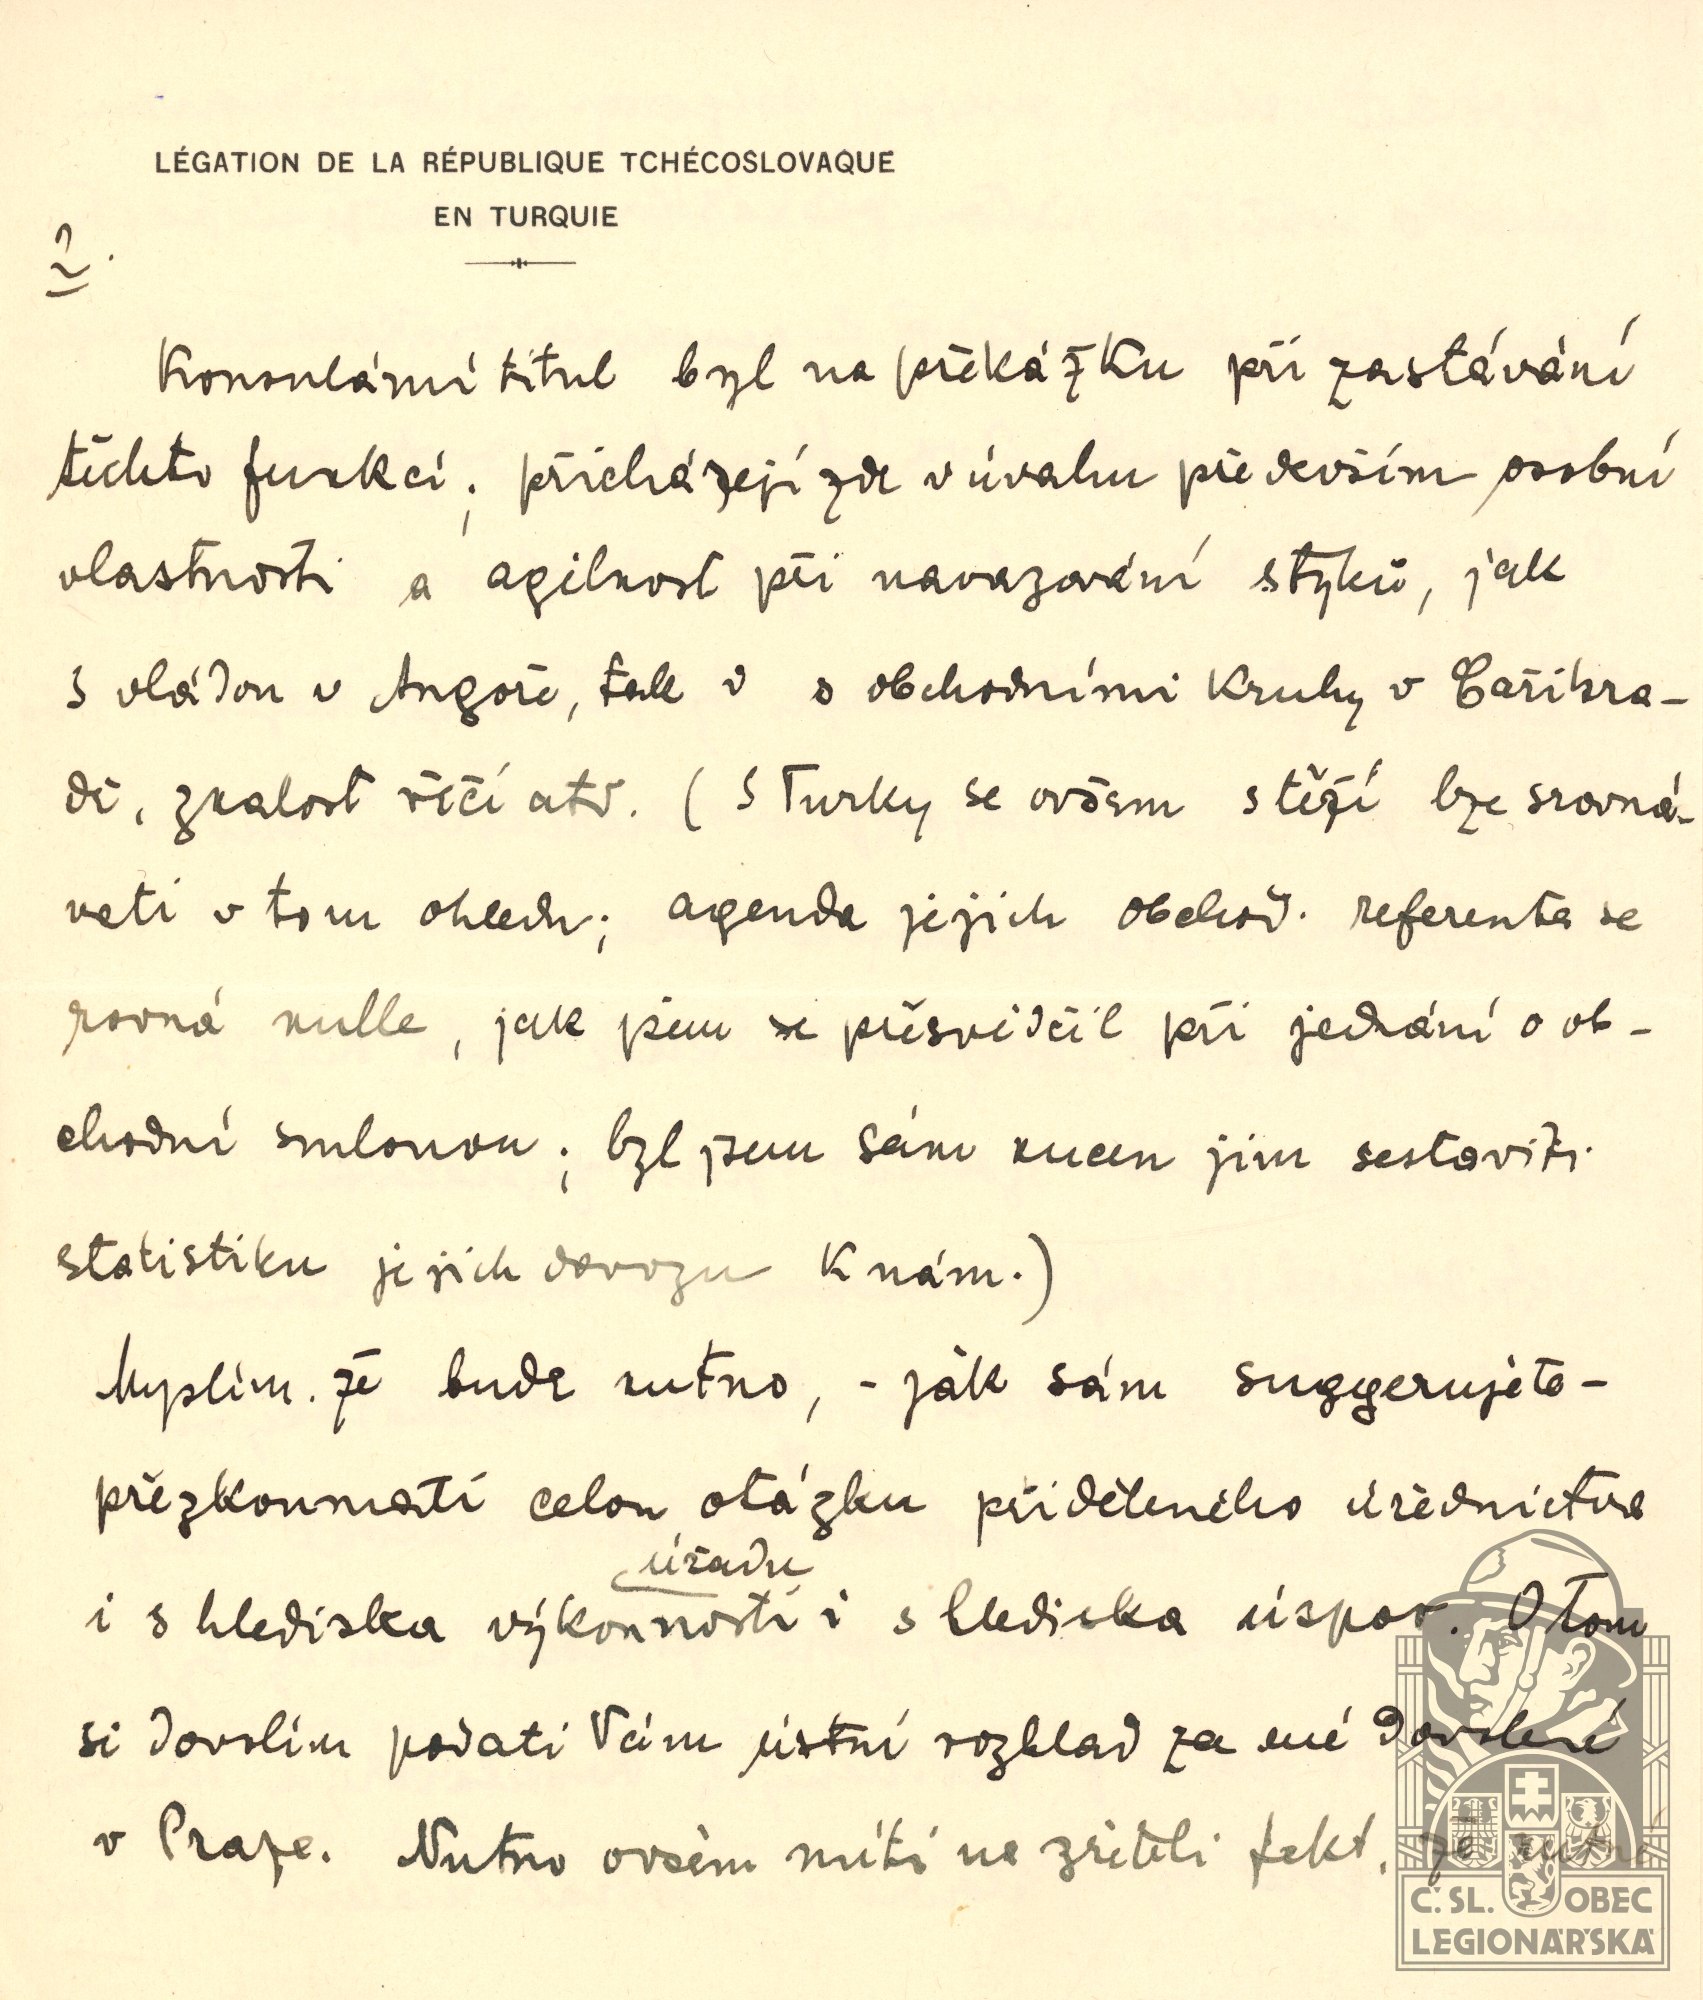 LÉGATION DE LA RÉPUBLIQUE TCHÉCOSLOVAQUE
EN TURQUIE
2.
Konsulární titul byl na překážku při zastávání
těchto funkcí; přicházejí zde v úvahu především osobní
vlastnosti a agilnost při navazování styků, jak
s vládou v Angoře, tak i s obchodními kruhy v Cařihra-
dě, znalost řečí atd. (S Turky se ovšem stěží lze srovná-
vati v tom ohledu; agenda jejich obchod. referenta se
rovná nulle, jak jsem se přesvědčil při jednání o ob-
chodní smlouvu; byl jsem sám nucen jim sestaviti
statistiku jejich dovozu k nám.)
Myslím, že bude nutno, - jak sám suggerujete -
přezkoumati celou otázku přiděleného úřednictva
úřadu
i s hlediska výkonnosti i s hlediska úspor. O tom
si dovolím podati Vám ústní rozklad za mé dovolené
v Praze. Nutno ovšem míti na zřeteli fakt, že nutné
Č. SL. OBEC
LEGIONÁŘSKÁ